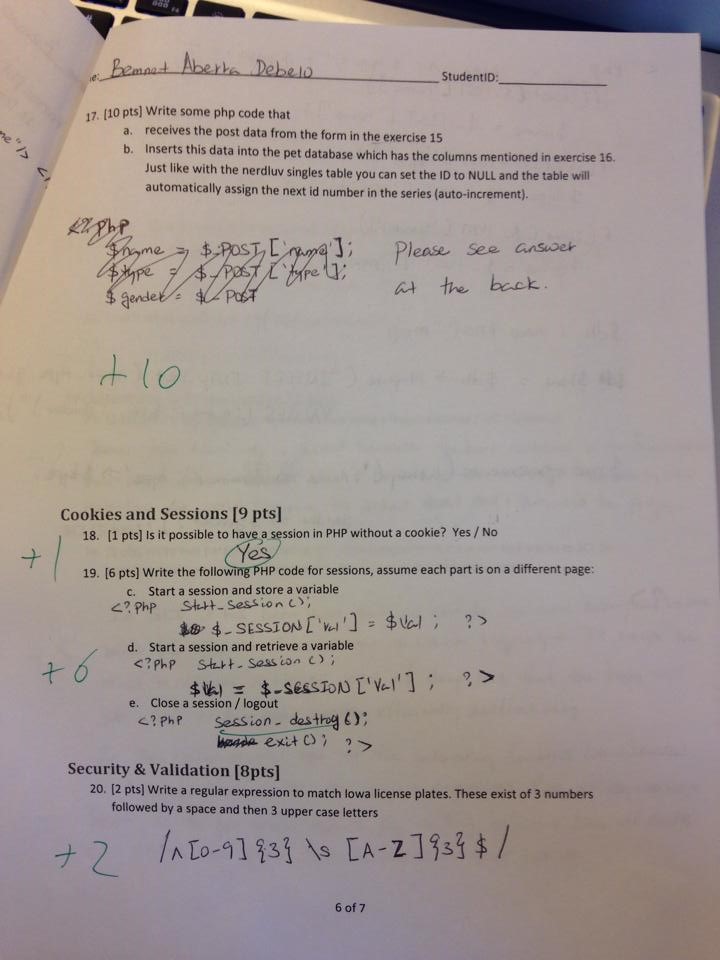 e: Bemnet Aberra Debelo StudentID:
17. [10 pts] Write some php code that
a. receives the post data from the form in the exercise 15
b. Inserts this data into the pet database which has the columns mentioned in exercise 16.
Just like with the nerdluv singles table you can set the ID to NULL and the table will
automatically assign the next id number in the series (auto-increment).
<? PhP
$name = $_POST['name']; Please see answer
$type = $_POST['type']; at the back.
$gender = $_POST
+10
Cookies and Sessions [9 pts]
18. [1 pts] Is it possible to have a session in PHP without a cookie? Yes / No
+1 Yes
19. [6 pts] Write the following PHP code for sessions, assume each part is on a different page:
c. Start a session and store a variable
<? PhP Start_Session();
$_SESSION['val'] = $Val ; ?>
d. Start a session and retrieve a variable
+6 <? PhP Start_Session();
$Val = $_SESSION['Val'] ; ?>
e. Close a session / logout
<? PhP Session_destroy();
exit(); ?>
Security & Validation [8pts]
20. [2 pts] Write a regular expression to match Iowa license plates. These exist of 3 numbers
followed by a space and then 3 upper case letters
+2 /^[0-9]{3} \s [A-Z]{3}$/
6 of 7